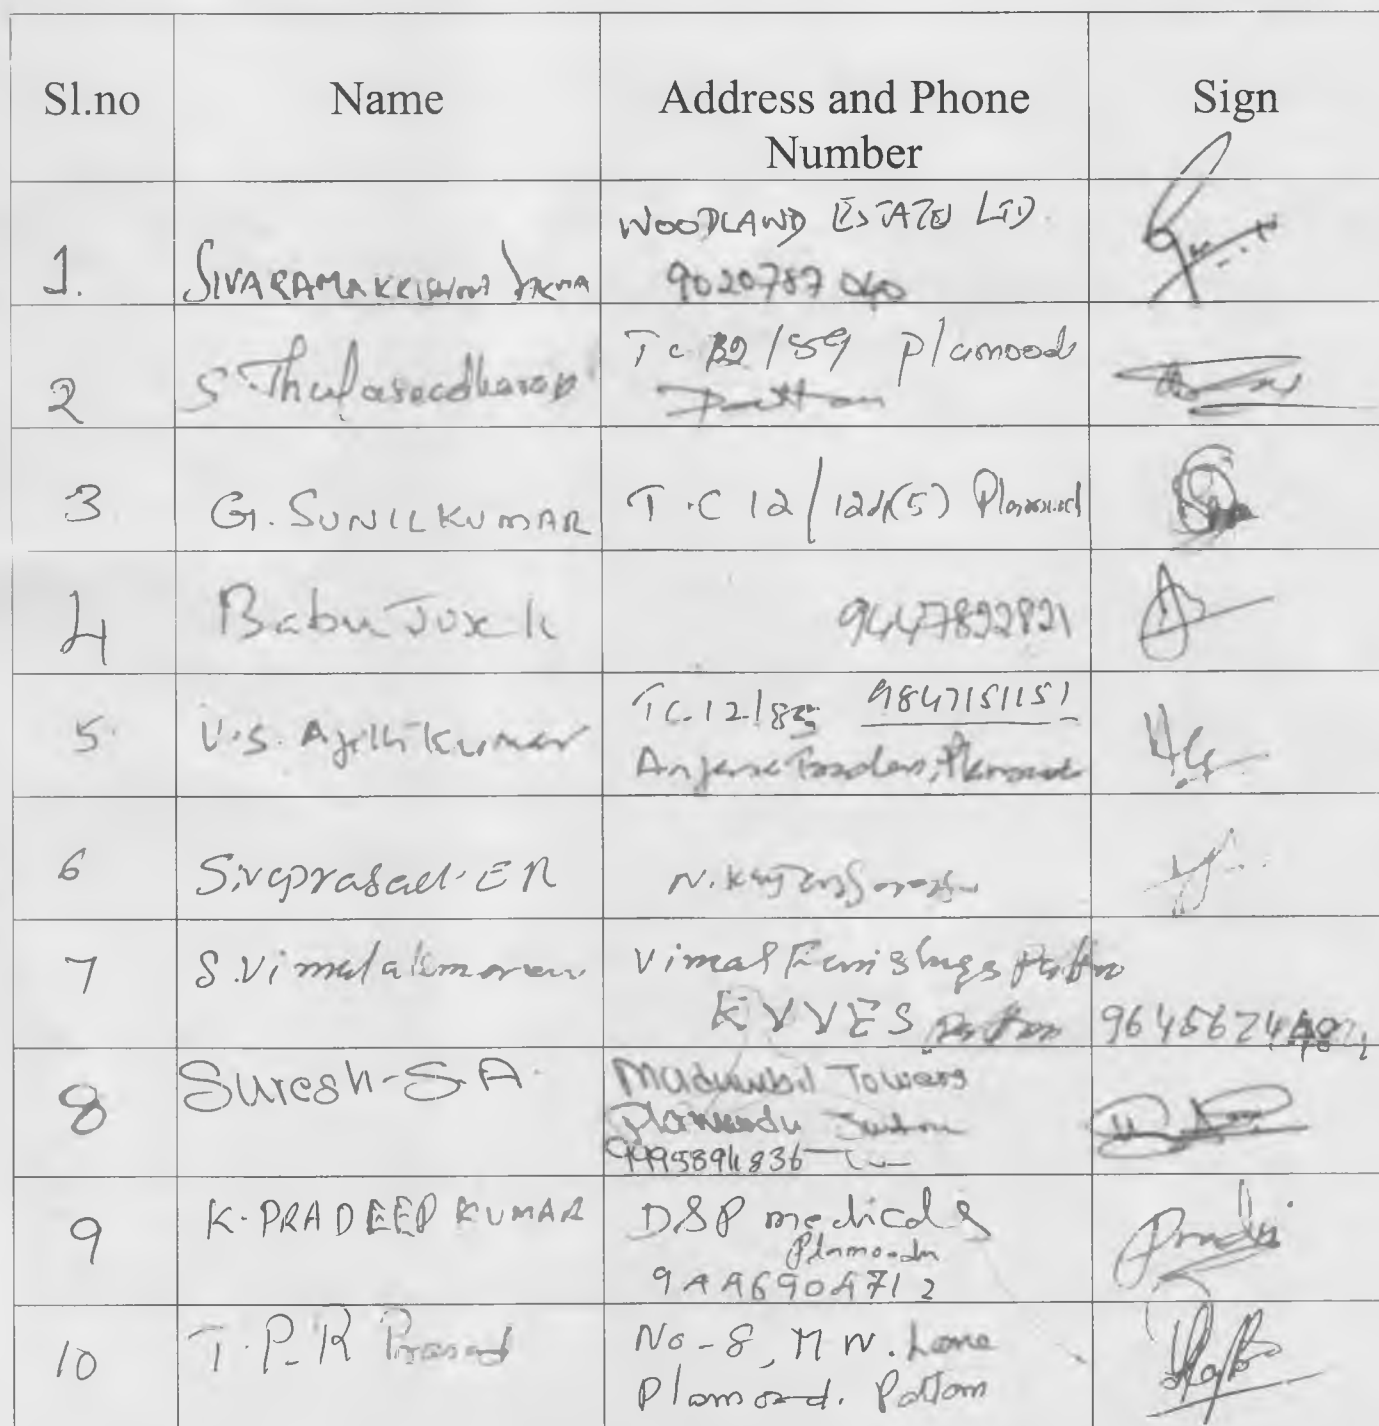 Sl.no Name Address and Phone Number Sign
WOODLAND ESTATES LTD.
1. SIVARAMAKRISHNA VARMA 9020787040
2 S. Thulaseedharan TC 22/59 Plamood
Pattom
3 G. SUNILKUMAR T.C 12/124(5) Plamood
4 Babu 9447822821
5. V.S. Ajith Kumar TC.12/83 9847151151
Traders, Plamood
6 Sivaprasad. E R N.
7 S. Vimalakumaran Vimal Furnishings Pattom
KVVES Pattom 9645624
8 Suresh-S A. Towers
Plamoodu Junction
9995894836
9 K. PRADEEP KUMAR DSP medicals
Plamoodu
9446904712
10 T.P.R Prasad No-8, M N. Lane
Plamood. Pattom